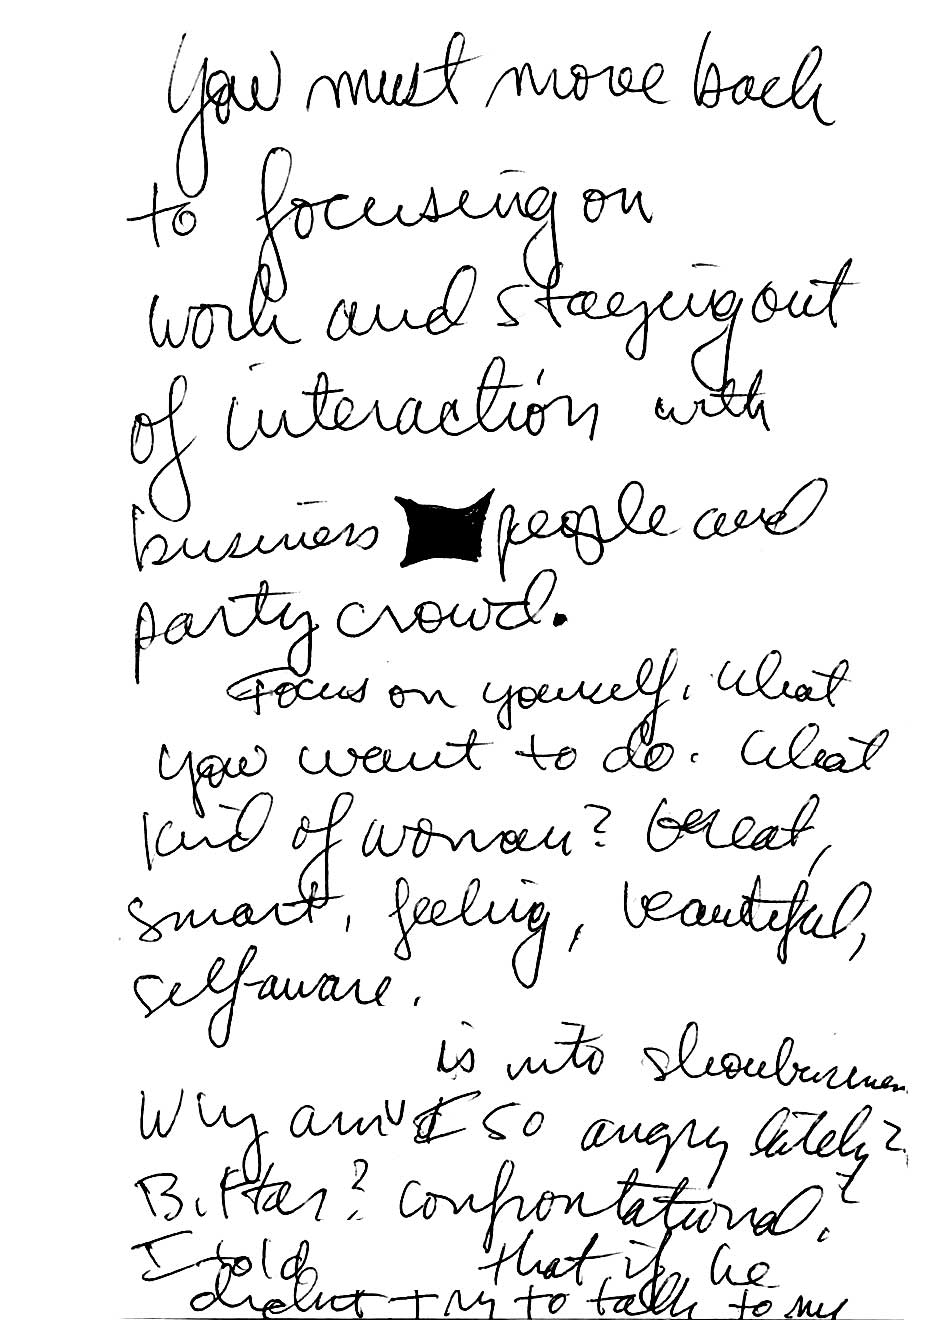 You must move back
to focusing on
work and staying out
of interaction with
business people and
party crowd.
Focus on yourself. What
you want to do. What
kind of woman? Great,
smart, feeling, beautiful,
self-aware.
is into showbusiness
Why am I so angry lately?
Bitter? Confrontational?
I told that if he
didn't try to talk to my